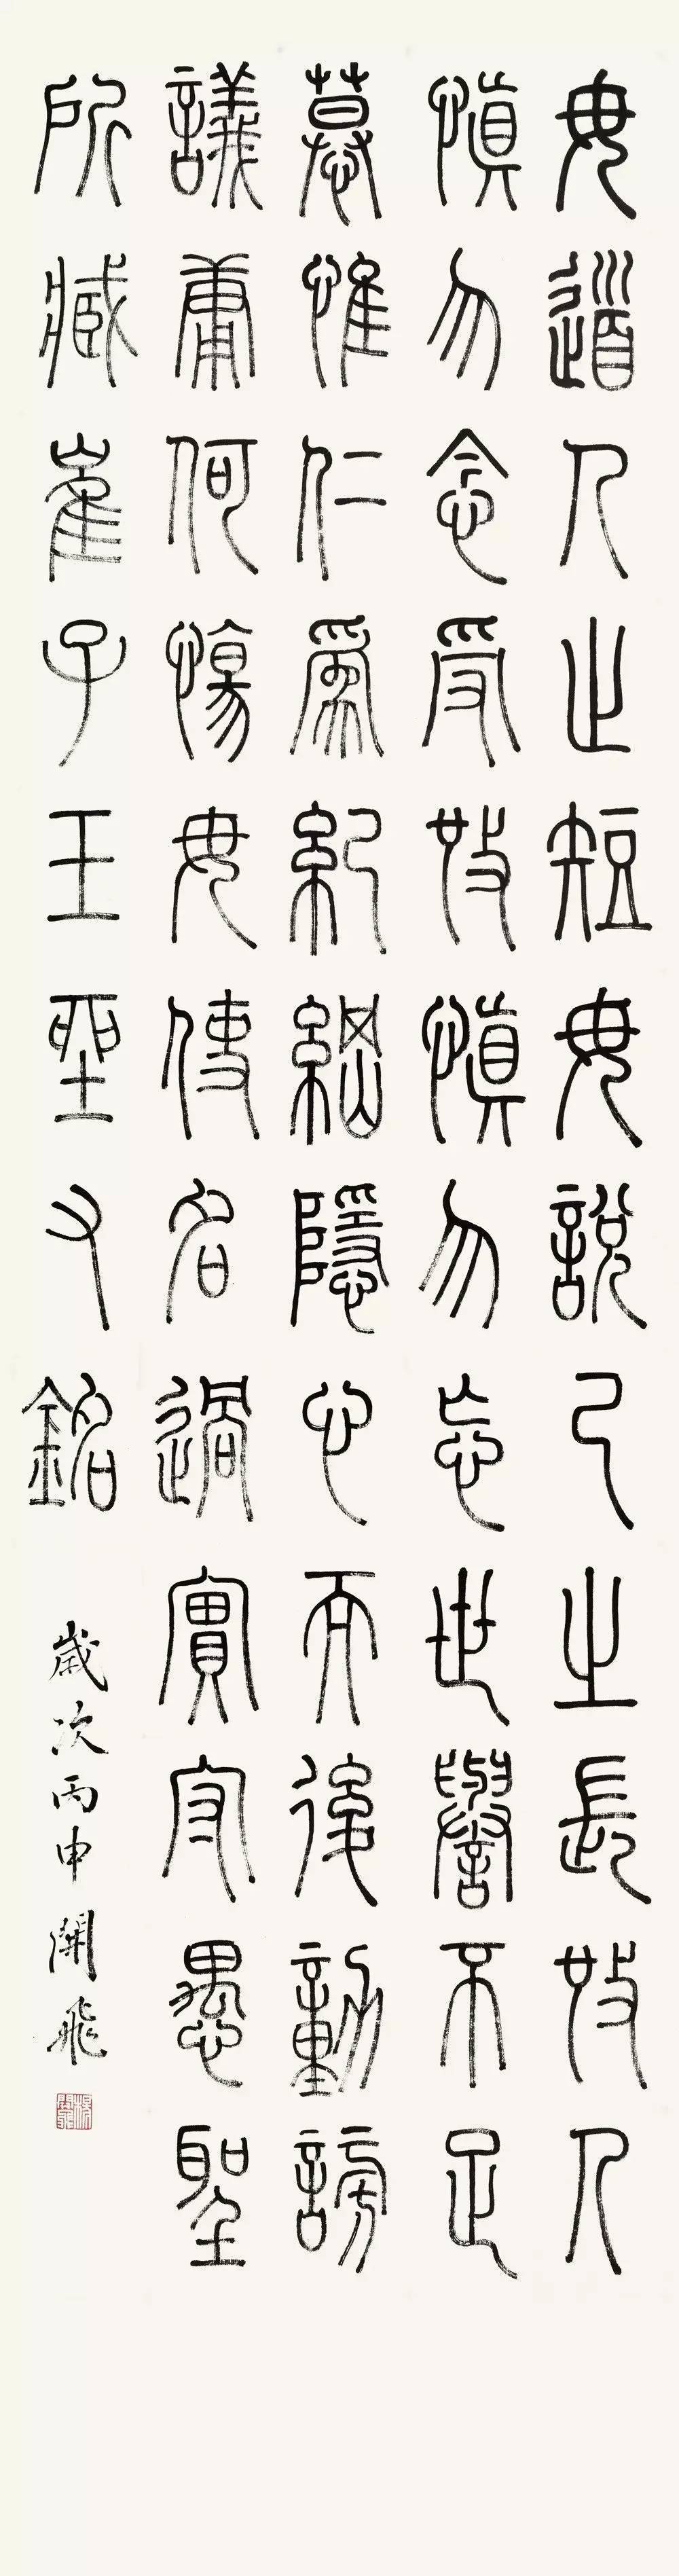 毋道人之短毋說己之長施人
慎勿念受施慎勿忘世譽不足
慕惟仁爲紀綱隱心而後動謗
議庸何慯毋使名過實守愚聖
所臧崔子玉坐又銘
歲次丙申開飛
楊開飛